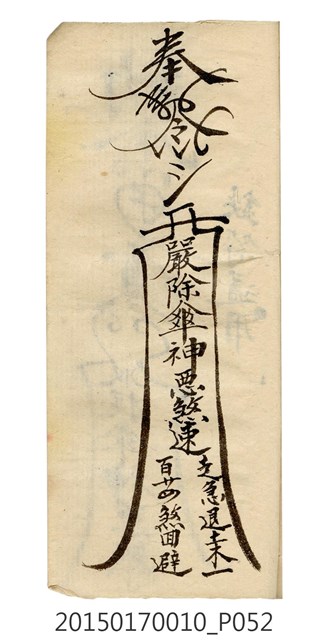 奉
令
嚴除
神惡煞速
走急退
百廿四煞回避
20150170010_P052